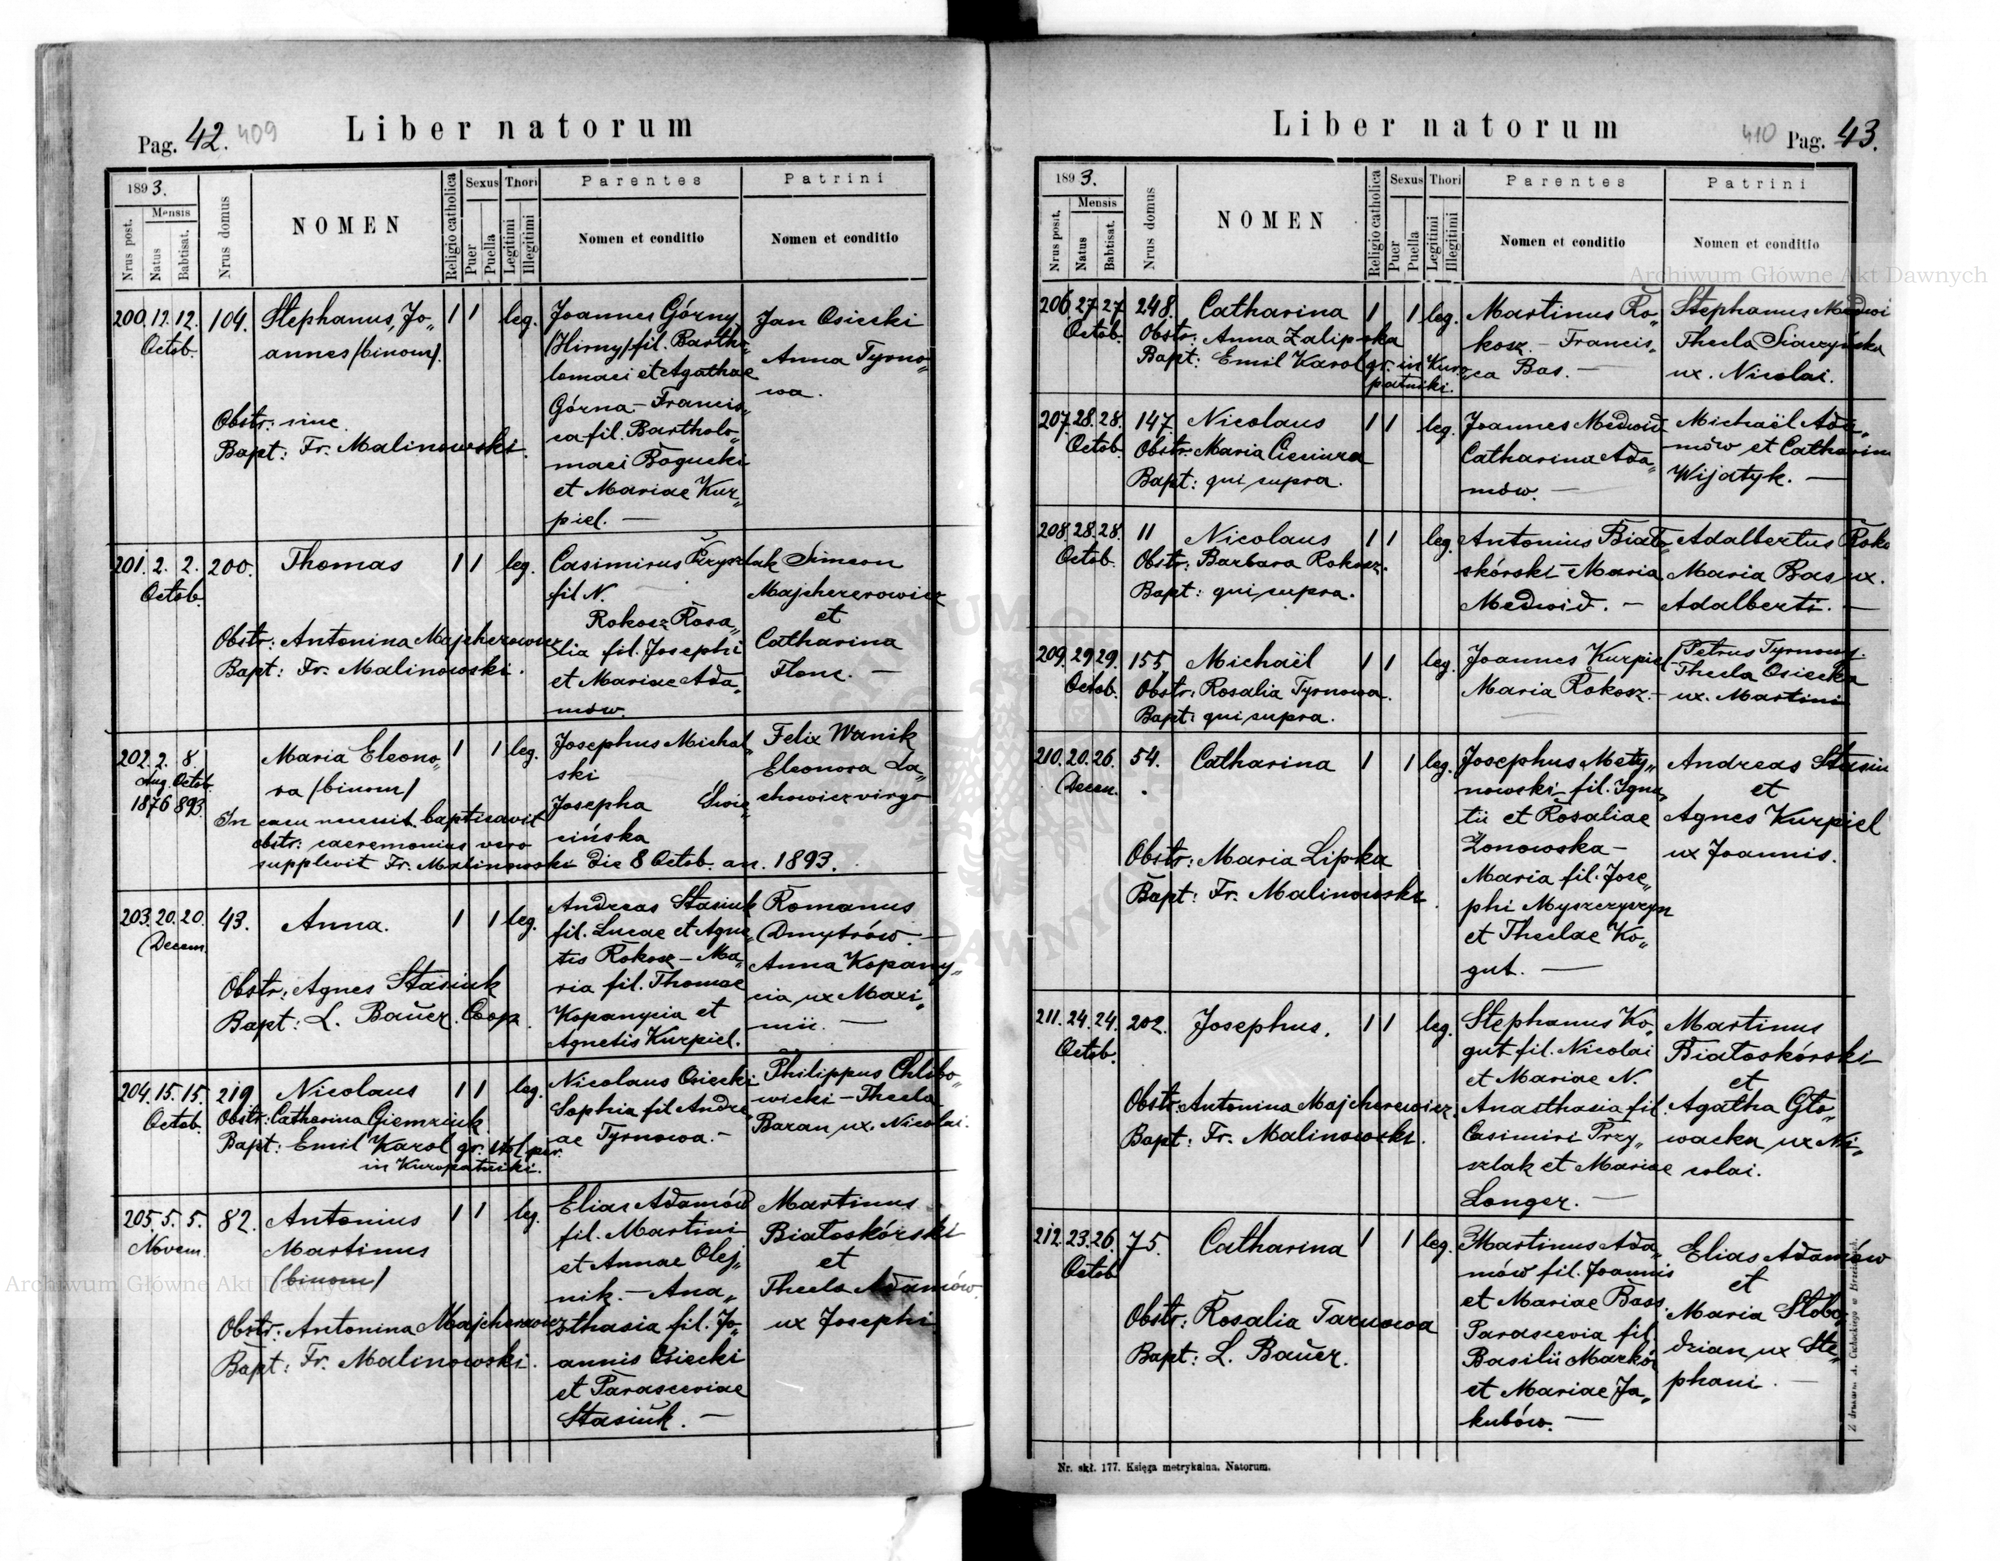 Pag. 42. 409 Liber natorum
1893.
Nrus post.
Mensis
Natus
Babtisat.
Nrus domus
NOMEN
Religio catholica
Sexus
Puer
Puella
Thori
Legitimi
Illegitimi
Parentes
Nomen et conditio
Patrini
Nomen et conditio
200. 12. 12. 104. Stephanus, Jo„ 1 1 leg. Joannes Górny Jan Osiecki
Octob. annes (binom). (Hirny) fil. Bartho„ Anna Tyrno„
lomaei et Agathae wa.
Górna – Francis„
Obstr: sine ca fil. Bartholo„
Bapt: Fr. Malinowski. maei Bogucki
et Mariae Kur„
piel. —
201. 2. 2. 200. Thomas 1 1 leg. Casimirus Przyszlak Simeon
Octob. fil N. Majchererowicz
Rokosz Rosa„ et
Obstr: Antonina Majcherowicz lia fil. Josephi Catharina
Bapt: Fr. Malinowski. et Mariae Ada„ Flonc. —
mów.
202. 2. 8. Maria Eleono„ 1 1 leg. Josephus Michal„ Felix Wanik
Aug. Octob. ra (binom) ski Eleonora La„
1876 893. Josepha Swie„ chowicz virgo
In casu necessit. baptisavit cińska
obstr: caeremonias vero
supplevit Fr. Malinowski die 8 Octob. an. 1893.
203. 20. 20. 43. Anna. 1 1 leg. Andreas Stasiuk Romanus
Decem. fil. Lucae et Agne„ Dmytrów. —
tis Rokosz – Ma„ Anna Kopany„
Obstr: Agnes Stasiuk ria fil. Thomae cia ux Maxi„
Bapt: L. Bauer. Coop. Kopanycia et mii. —
Agnetis Kurpiel.
204. 15. 15. 219 Nicolaus 1 1 leg. Nicolaus Osiecki Philippus Chlibo„
Octob. Obstr: Catherina Giemziuk Sophia fil Andre„ wicki – Thecla
Bapt: Emil Karol gr. in Kuropatniki. ae Tyrnowa. – Baran ux. Nicolai.
205. 5. 5. 82. Antonius 1 1 leg. Elias Adamów Martinus
Novem. Martinus fil. Martini Białoskórski
(binom) et Annae Olej„ et
nik. – Ana„ Thecla Adamów
Obstr: Antonina Majcherowicz sthasia fil. Jo„ ux Josephi
Bapt: Fr. Malinowski. annis Osiecki
et Parasceviae
Stasiuk. —
Liber natorum 410 Pag. 43.
1893.
Nrus post.
Mensis
Natus
Babtisat.
Nrus domus
NOMEN
Religio catholica
Sexus
Puer
Puella
Thori
Legitimi
Illegitimi
Parentes
Nomen et conditio
Patrini
Nomen et conditio
206. 27. 27 248. Catharina 1 1 leg. Martinus Ro„ Stephanus Medwi
Octob. Obstr: Anna Zalipska kosz. – Francis„ Thecla Siaczyńska
Bapt: Emil Karol gr. in Kuro„ ca Bas. – ux. Nicolai.
patniki.
207. 28. 28. 147. Nicolaus 1 1 leg. Joannes Medwid Michaël Ada„
Octob. Obstr: Maria Cieciura Catharina Ada„ mów et Catharina
Bapt: qui supra. mów. — Wijatyk. —
208. 28. 28. 11 Nicolaus 1 1 leg. Antonius Biało„ Adalbertus Roko
Octob. Obstr: Barbara Rokosz. skórski – Maria Maria Bas ux.
Bapt: qui supra. Medwid. – Adalberti. —
209. 29 29. 155 Michaël 1 1 leg. Joannes Kurpiel Petrus Tyrnowy.
Octob. Obstr: Rosalia Tyrnowa. Maria Rokosz. – Thecla Osiecka
Bapt: qui supra. ux. Martini
210. 20. 26. 54. Catharina 1 1 leg. Josephus Mety„ Andreas Stasiu
Decem. nowski fil. Igna„ et
tii et Rosaliae Agnes Kurpiel
Obstr: Maria Lipka Zonowska – ux Joannis.
Bapt: Fr. Malinowski. Maria fil. Jose„
phi Myszczyszyn
et Theclae Ko„
gut. —
211. 24. 24. 202. Josephus. 1 1 leg. Stephanus Ko„ Martinus
Octob. gut fil. Nicolai Białoskórski
et Mariae N. et
Obstr: Antonina Majcherowicz. Anasthasia fil. Agatha Gło„
Bapt: Fr. Malinowski. Casimiri Przy„ wacka ux Ni„
szlak et Mariae colai.
Longer. —
212. 23. 26. 75. Catharina 1 1 leg. Martinus Ada„ Elias Adamów
Octob. mów fil. Joannis et
et Mariae Bass. Maria Słobo„
Obstr: Rosalia Tarnowa Parascevia fil. dzian ux Ste„
Bapt: L. Bauer. Basilii Marków phani. —
et Mariae Ja„
kubów. —
Nr. skł. 177. Księga metrykalna. Natorum.
Archiwum Główne Akt Dawnych
Archiwum Główne Akt Dawnych